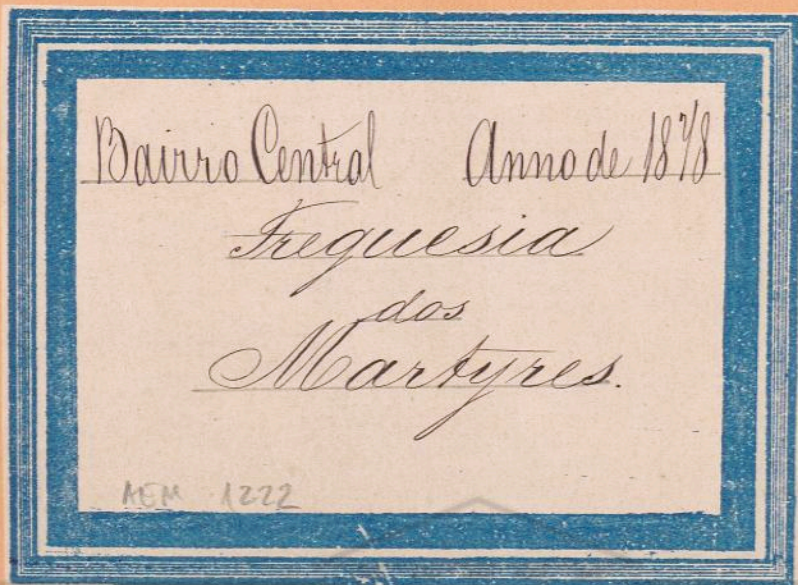 Bairro Central Anno de 1878
Freguesia
dos
Martyres.
AEM 1222